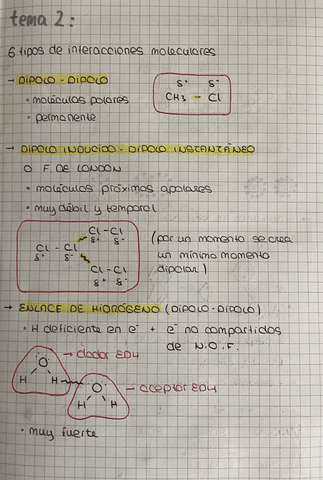 tema 2:
6 tipos de interacciones moleculares
→ DIPOLO - DIPOLO
• moléculas polares
• permanente
δ+ δ-
CH3 - Cl
→ DIPOLO INDUCIDO - DIPOLO INSTANTÁNEO
O F. DE LONDON
• moléculas próximas apolares
• muy débil y temporal
Cl - Cl
δ+ δ-
Cl - Cl
δ+ δ-
Cl - Cl
δ+ δ-
(por un momento se crea
un mínimo momento
dipolar)
→ ENLACE DE HIDRÓGENO (DIPOLO-DIPOLO)
• H deficiente en e- + e- no compartidos
de N.O.F.
O → dador EDH
H H O → aceptor EDH
H H
• muy fuerte